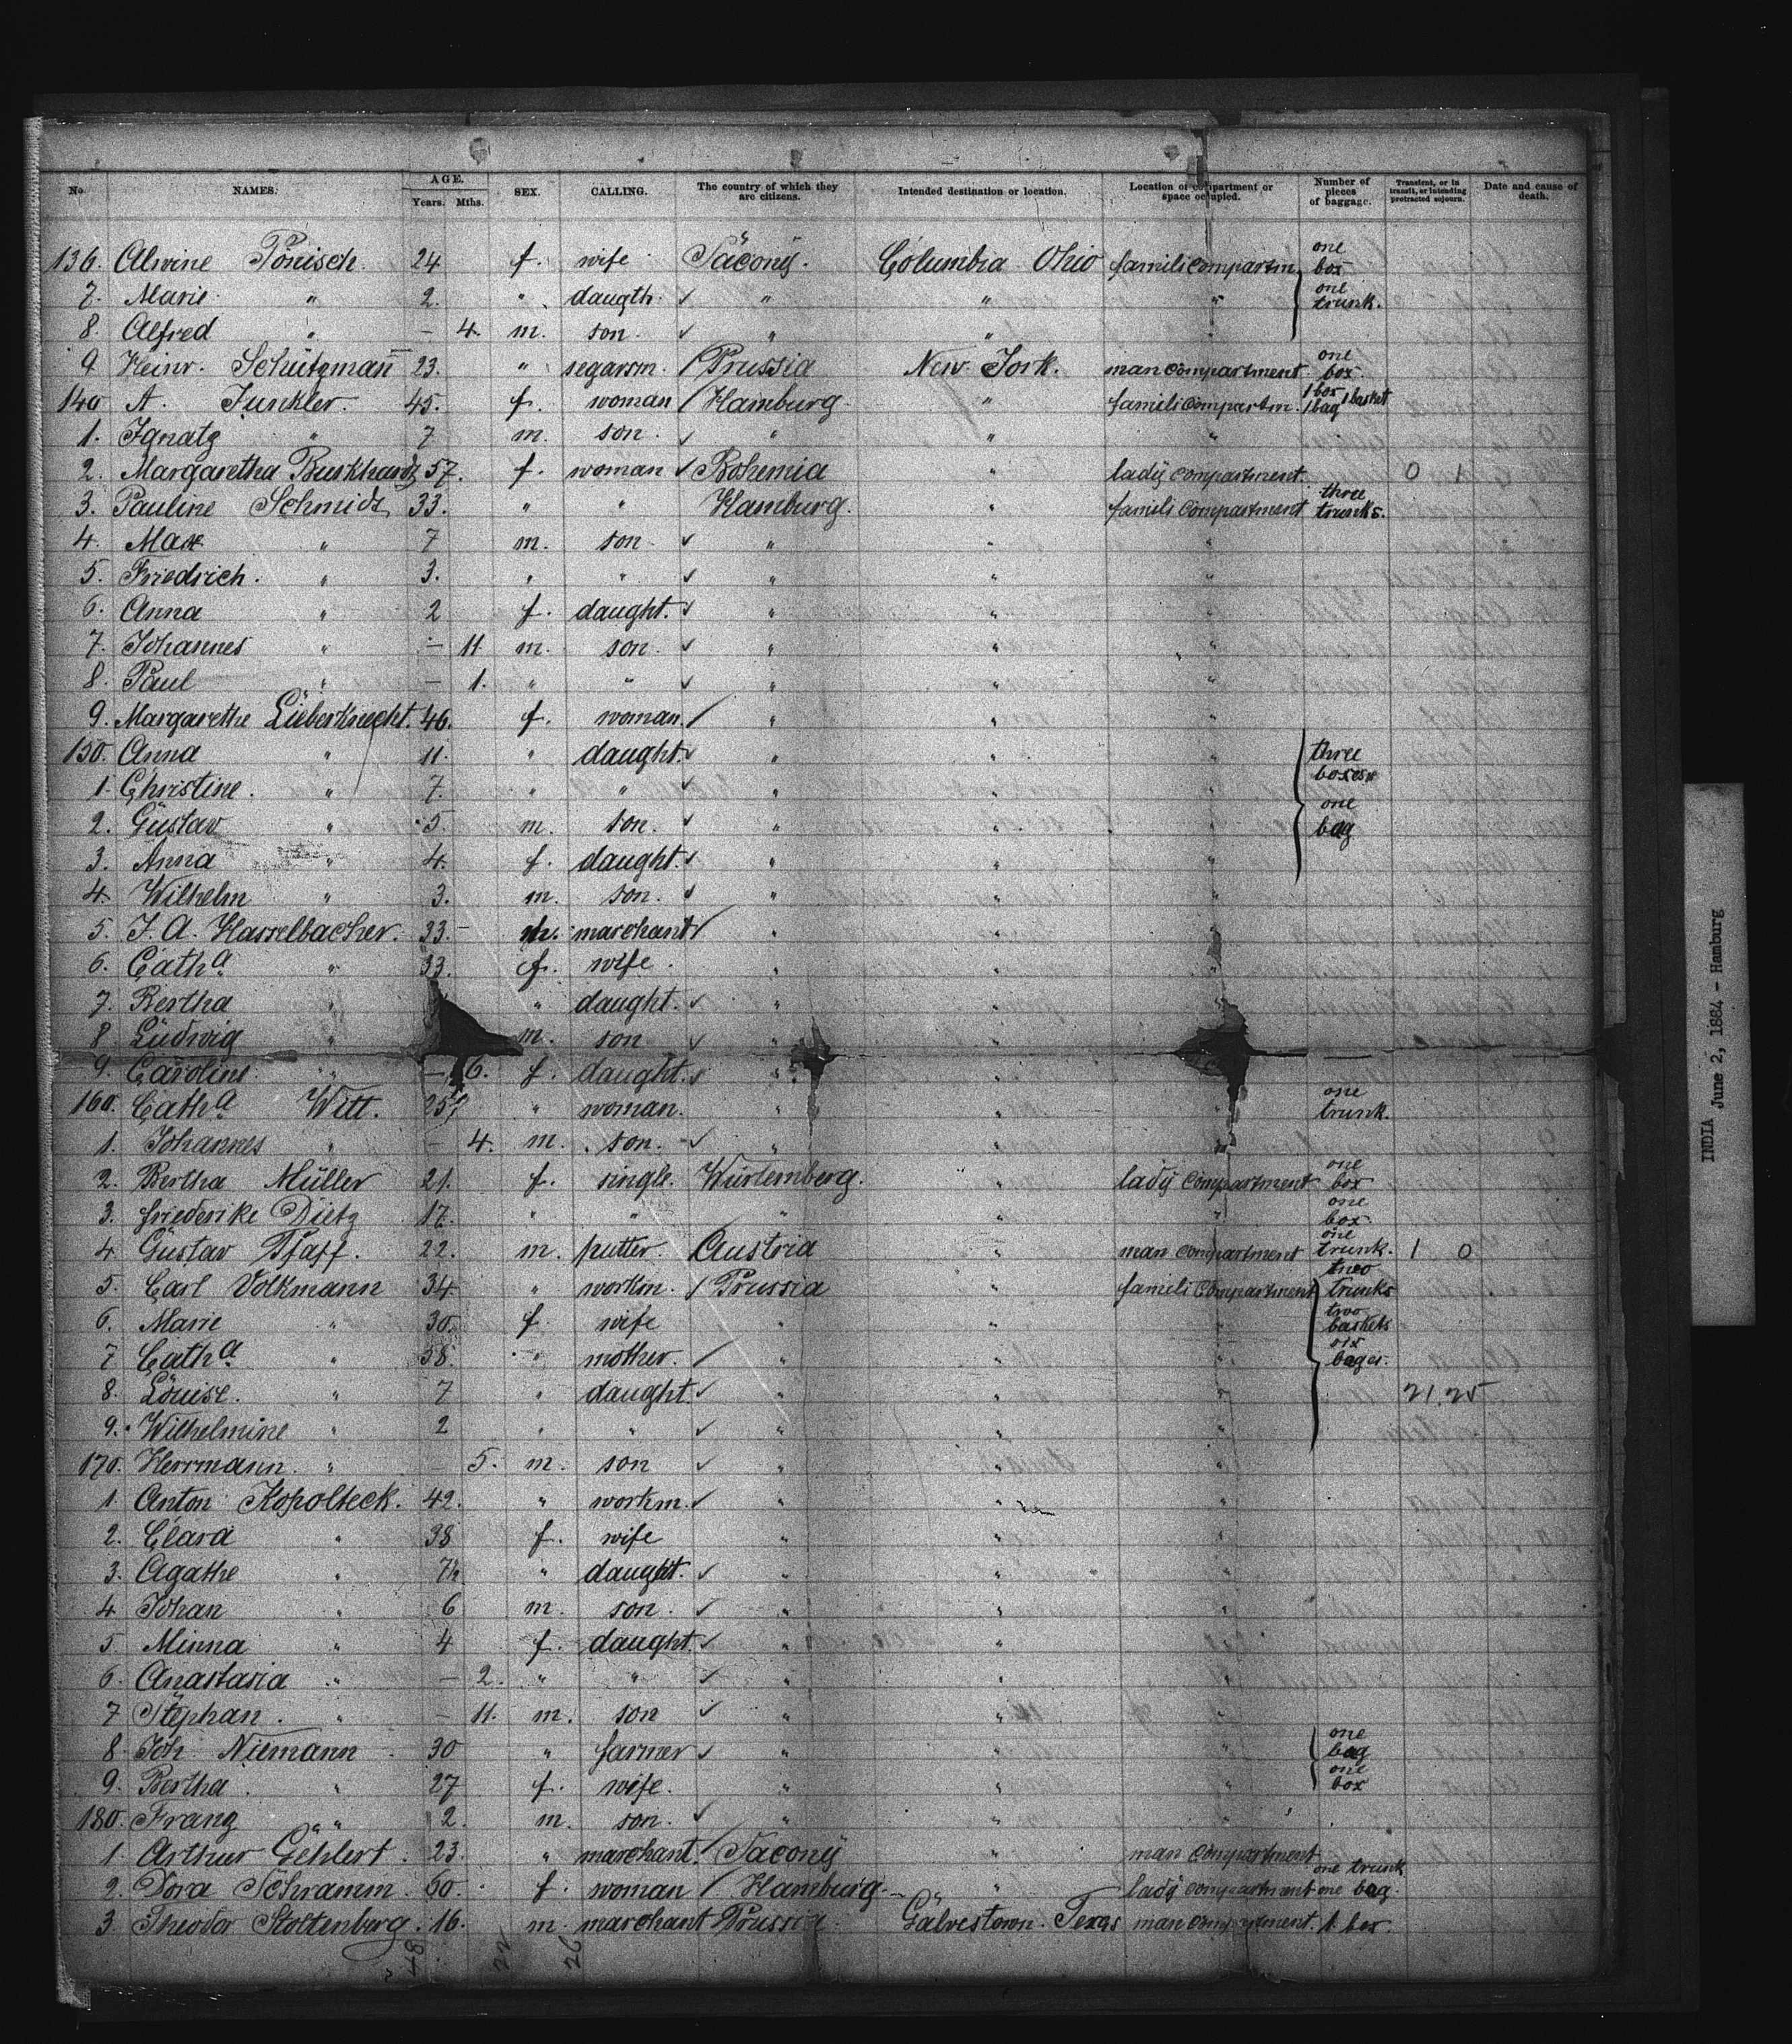 No. NAMES. AGE. Years. Mths. SEX. CALLING. The country of which they are citizens. Intended destination or location. Location of compartment or space occupied. Number of pieces of baggage. Transient, or in transit, or intending protracted sojourn. Date and cause of death.
136. Alwine Pönisch. 24 f. wife Sacony. Columbia Ohio famili compartm. one box
7. Marie " 2. " daugth. ✓ " " " one trunk.
8. Alfred " — 4. m. son. ✓ " "
9 Heinr. Schützmañ 23. " segarrm. / Prussia New York. man compartment one box.
140 A. Junkler. 45. f. woman / Hamburg. " famili compartm. 1 box 1 bag 1 basket
1. Ignatz " 7 m. son. ✓ " " "
2. Margaretha Burkhardt 57. f. woman ✓ Bohemia " lady compartment. 0 1
3. Pauline Schmidt 33. " " Hamburg. " famili compartment three trunks.
4. Max " 7 m. son. ✓ " " "
5. Friedrich. " 3. " " ✓ " " "
6. Anna " 2 f. daught. ✓ " " "
7. Johannes " — 11 m. son. ✓ " " "
8. Paul " — 1. " " ✓ " " "
9. Margarethe Lieberknecht. 46. f. woman. / " " "
150. Anna " 11. " daught. ✓ " " " three boxes
1. Christine. " 7. " " ✓ " " "
2. Gustav " 5. m. son. ✓ " " " one bag
3. Anna " 4. f. daught. ✓ " " "
4. Wilhelm " 3. m. son. ✓ " " "
5. J. A. Hasselbacher. 33. — m. marchant ✓ " " "
6. Catha " 33. f. wife. " " "
7. Bertha " " daught. ✓ " "
8 Ludwig " m. son ✓ " "
9. Caroline " — 6. f. daught. ✓ " "
160. Catha Witt. 25 " woman. " " " one trunk.
1. Johannes " — 4. m. son. ✓ " " "
2. Bertha Müller 21. f. single. Würtemberg. " lady compartment one box
3. Friederike Dietz 17. " " " " " one box.
4 Gustav Pfaff. 22. m. putter. Austria " man compartment one trunk. 1 0
5. Carl Volkmann 34. " workm. / Prussia " famili compartment two trunks
6. Marie " 30. f. wife " " " two baskets
7 Catha " 58. " mother. / " " " six bages.
8. Louise. " 7 " daught. ✓ " " " 21.25
9. Wilhelmine " 2 " " ✓ " " "
170. Herrmann. " — 5. m. son ✓ " " "
1 Anton Kopolteck. 42. " workm. ✓ " " "
2. Clara " 38 f. wife " " "
3. Agathe " 7½ " daught. ✓ " " "
4 Johan " 6 m. son. ✓ " " "
5. Minna " 4 f. daught. ✓ " " "
6. Anastasia " — 2. " " ✓ " " "
7 Stephan. " — 11. m. son ✓ " " "
8. Joh. Niemann 30 " farmer ✓ " " " one bag
9. Bertha. " 27 f. wife. " " " one box
180. Franz " " 2. m. son. ✓ " " "
1 Arthur Gehlert. 23. " marchant. / Sacony " man compartment
2. Dora Schramm. 60. f. woman / Hamburg. " lady compartment one trunk one bag.
3. Theodor Stoltenberg. 16. m. marchant Prussia. Galvestown. Texas man compartment. 1 box.
48 22 26
INDIA June 2, 1884 - Hamburg